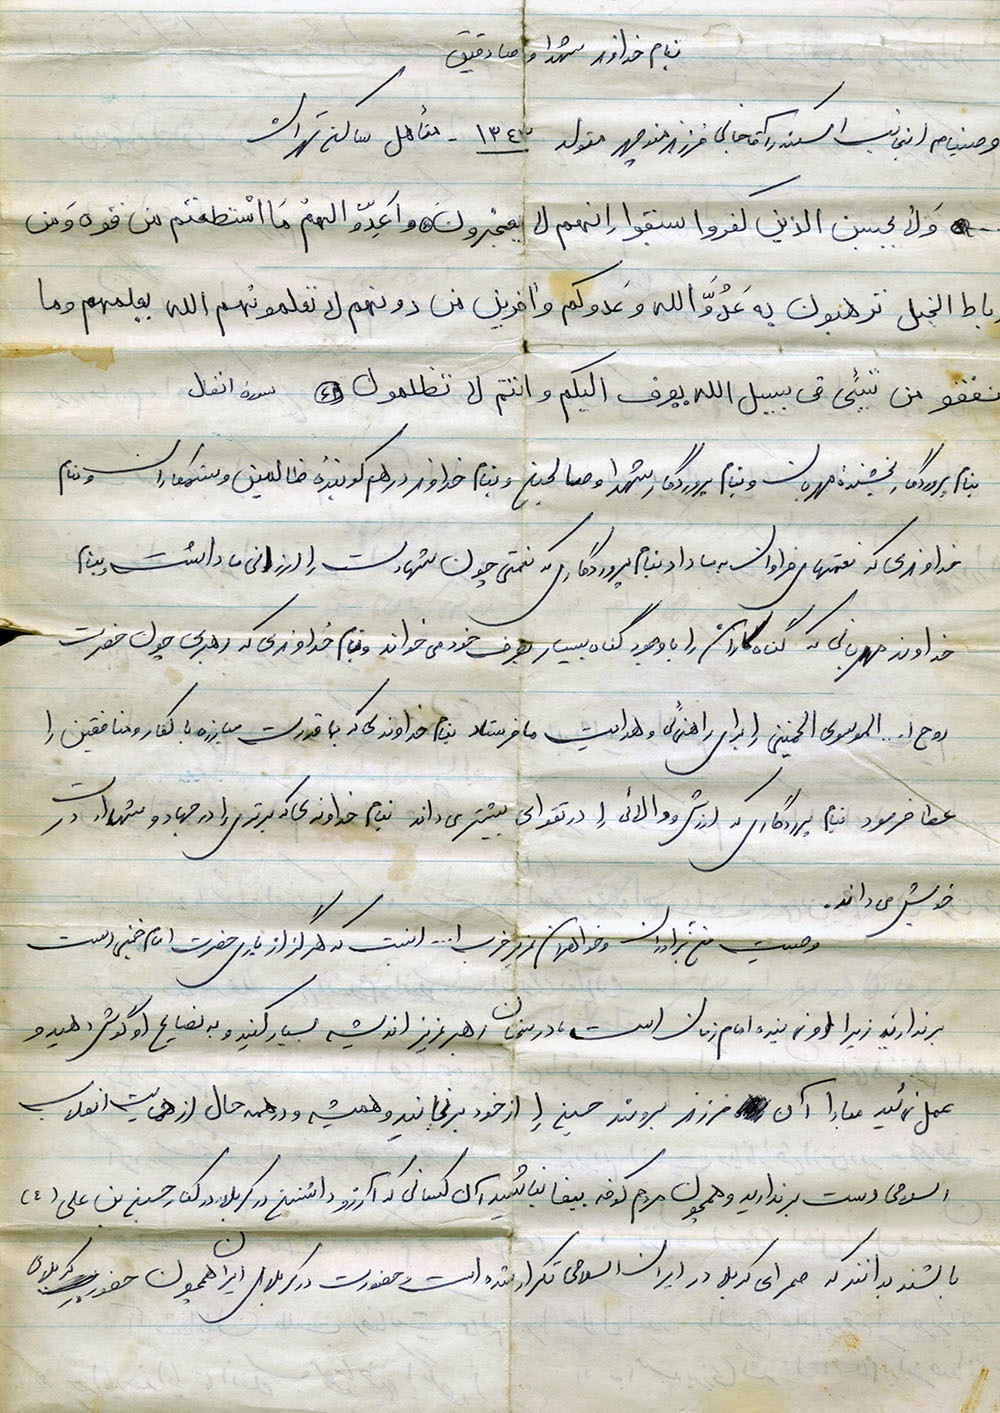 بنام خداوند شهدا و صادقین
وصیتنام اینجانب اسکندر آقاجانی فرزند منوچهر متولد ١٣٤٣ - متأهل ساکن تهران
وَلا یحسبن الذین کفروا سبقوا انهم لا یعجزون واَعِدّوا لهم مَا اسْتطعتم من قوه وَمن
رباط الخیل ترهبون به عَدُوَّ الله وعَدوکم وآخرین من دونهم لا تعلمونهم الله یعلمهم وما
تنفقو من شیئی فی سبیل الله یوف الیکم وانتم لا تظلمون سوره انفال
بنام پروردگار بخشنده مهربان و بنام پروردگار شهدا و صالحین و بنام خداوند درهم کوبنده ظالمین و ستمکاران و بنام
خداوندی که نعمتهای فراوان به ما داد بنام پروردگاری که نعمتی چون شهادت را ارزانی ما داشت بنام
خداوند مهربانی که گناه کاران را با وجود گناه بسیار بطرف خود می خواند و بنام خداوندی که رهبری چون حضرت
روح ا... الموسوی الخمینی را برای راهنمائی و هدایت ما فرستاد بنام خداوندی که بما قدرت مبارزه با کفار و منافقین را
عطا فرمود بنام پروردگاری که ارزش و والائی را در تقوای بیشتر می داند بنام خداوندی که برتری را در جهاد و شهادت در
خویش می داند.
وصیت من به برادران و خواهران عزیز حزب ا... اینست که هرگز از یاری حضرت امام خمینی دست
برندارید زیرا او نماینده امام زمان است در سخنان رهبر عزیز اندیشه بسیار کنید و به نصایح او گوش دهید و
عمل نمائید مبادا آن فرزند برومند حسین را از خود برنجانید و همیشه و در همه حال از حمایت انقلاب
اسلامی دست برندارید و همچون مردم کوفه بیوفا نباشید آن کسانی که آرزو داشتند در کربلا در کنار حسین بن علی (ع)
باشند بدانند که صحرای کربلا در ایران اسلامی تکرار شده است و حضورت در کربلای ایران همچون حضور در کربلای